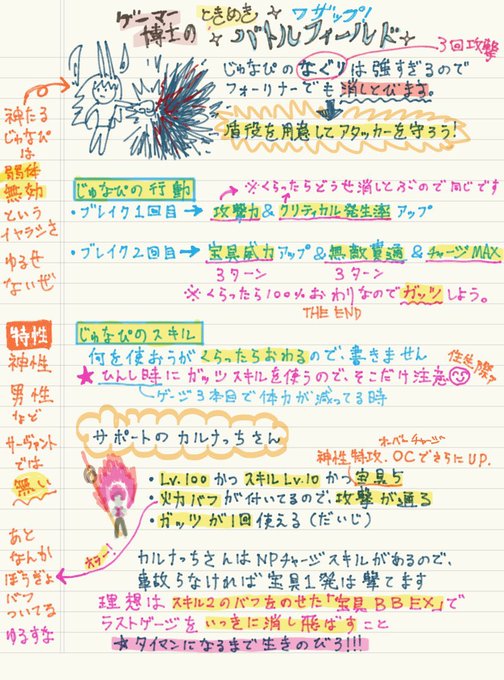 ゲーマー
博士の
ときめき
ワザップ!
バトルフィールド
3回攻撃
じゅなぴの なぐり は強すぎるので
フォーリナーでも 消しとびます。
盾役を用意してアタッカーを守ろう!
神たる
じゅなぴ
は
弱体
無効
という
イヤラシさ
ゆるせ
ないぜ
じゅなぴの行動
※くらったらどうせ消しとぶので同じです
・ブレイク1回目→ 攻撃力&クリティカル発生率アップ
・ブレイク2回目→ 宝具威力アップ&無敵貫通&チャージMAX
3ターン
3ターン
※くらったら100%おわりなのでガッツしよう。
THE END
特性
神性
男性
など
サーヴァント
では
無い
じゅなぴのスキル
何を使おうがくらったらおわるので、書きません
★ひんし時にガッツスキルを使うので、そこだけ注意
ゲージ3本目で体力が減ってる時
サポートのカルナっちさん
オーバーチャージ
神性特攻。OCでさらにUP。
・Lv.100かつスキルLv.10かつ宝具5
・火力バフが付いてるので、攻撃が通る
・ガッツが1回使える(だいじ)
ホラー!
あと
なんか
ぼうぎょ
バフ
ついてる
ゆるすな
カルナっちさんはNPチャージスキルがあるので、
事故らなければ宝具1発は撃てます
理想はスキル2のバフをのせた「宝具BBEX」で
ラストゲージをいっきに消し飛ばすこと
☆タイマンになるまで生きのびろ!!!